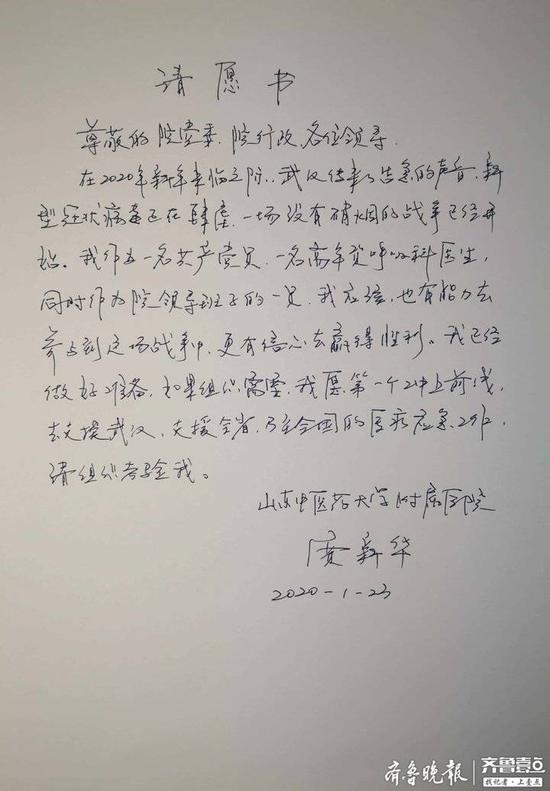 请愿书
尊敬的院党委、院行政、各位领导:
在2020年新年来临之际,武汉传来了告急的声音,新
型冠状病毒正在肆虐,一场没有硝烟的战争已经开
始。我作为一名共产党员,一名高年资呼吸科医生,
同时作为院领导班子的一员,我应该,也有能力去
参与到这场战争中,更有信心去赢得胜利。我已经
做好准备,如果组织需要,我愿第一个冲上前线,
去支援武汉、支援全省、乃至全国的医疗应急工作,
请组织考验我。
山东中医药大学附属医院
贾新华
2020-1-23
齐鲁晚报 齐鲁壹点
找记者·上壹点